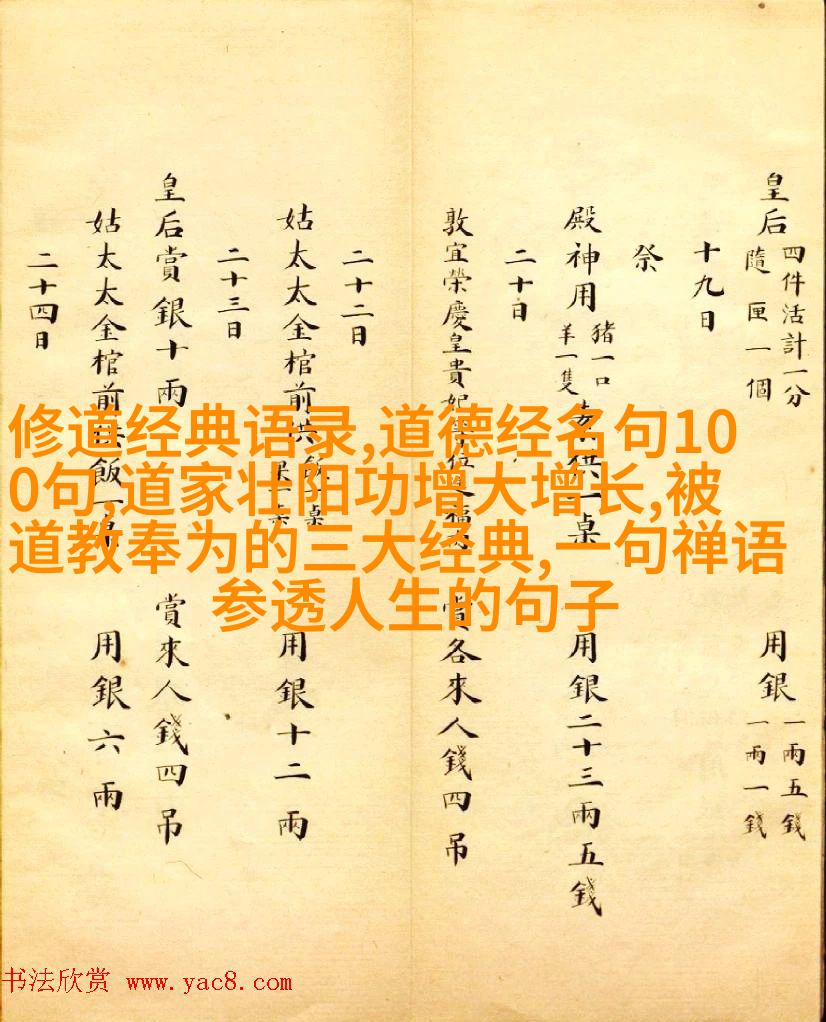 皇后
四件活計一分
隨匣一個
用銀
一兩五錢
一兩一錢
十九日
祭
殿神用
豬一口
羊一隻
素供一桌
用銀二十三兩五錢
二十日
敦宜榮慶皇貴妃
賞各來人錢四吊
二十二日
姑太太金棺前供飯一桌
用銀十二兩
二十三日
皇后賞銀十兩
賞來人錢四吊
姑太太金棺前供飯一
用銀六兩
二十四日
修道经典语录,道德经名句10
0句,道家壮阳功增大增长,被
道教奉为的三大经典,一句禅语
参透人生的句子
书法欣赏 www.yac8.com